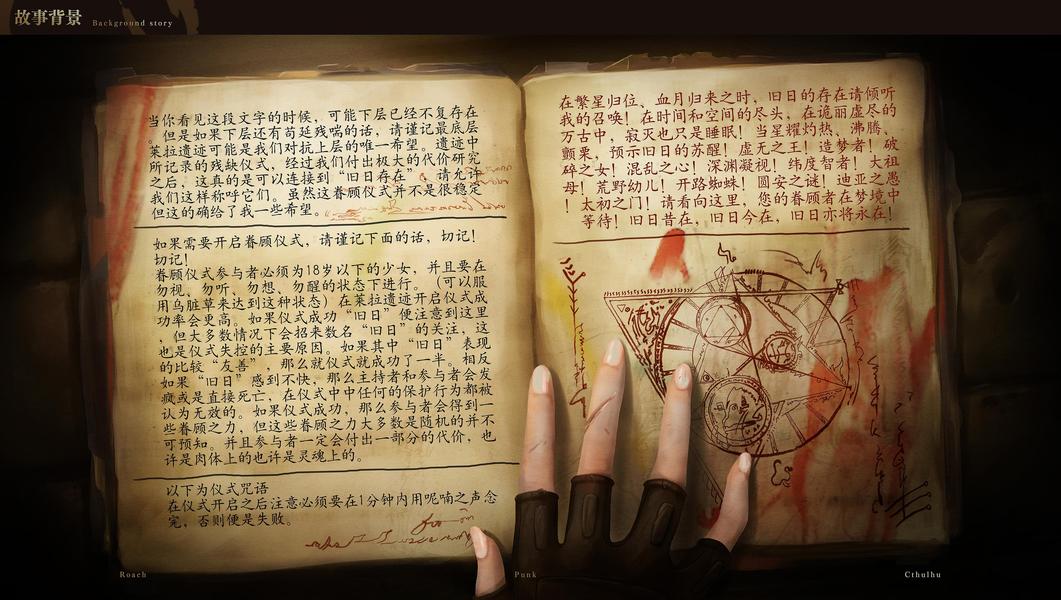 故事背景
Background story
当你看见这段文字的时候，可能下层已经不复存在
，但是如果下层还有苟延残喘的话，请谨记最底层
莱拉遗迹可能是我们对抗上层的唯一希望。遗迹中
所记录的残缺仪式，经过我们付出极大的代价研究
之后，这真的是可以连接到“旧日存在”，请允许
我们这样称呼它们。虽然这眷顾仪式并不是很稳定
但这的确给了我一些希望。
如果需要开启眷顾仪式，请谨记下面的话，切记！
切记！
眷顾仪式参与者必须为18岁以下的少女，并且要在
勿视、勿听、勿想、勿醒的状态下进行。（可以服
用乌脏草来达到这种状态）在莱拉遗迹开启仪式成
功率会更高。如果仪式成功“旧日”便注意到这里
，但大多数情况下会招来数名“旧日”的关注，这
也是仪式失控的主要原因。如果其中“旧日”表现
的比较“友善”，那么就仪式就成功了一半。相反
如果“旧日”感到不快，那么主持者和参与者会发
疯或是直接死亡，在仪式中中任何的保护行为都被
认为无效的。如果仪式成功，那么参与者会得到一
些眷顾之力，但这些眷顾之力大多数是随机的并不
可预知。并且参与者一定会付出一部分的代价，也
许是肉体上的也许是灵魂上的。
以下为仪式咒语
在仪式开启之后注意必须要在1分钟内用呢喃之声念
完，否则便是失败。
在繁星归位、血月归来之时，旧日的存在请倾听
我的召唤！在时间和空间的尽头，在诡丽虚尽的
万古中，寂灭也只是睡眠！当星耀灼热、沸腾、
颤栗，预示旧日的苏醒！虚无之王！造梦者！破
碎之女！混乱之心！深渊凝视！纬度智者！大祖
母！荒野幼儿！开路蜘蛛！圆安之谜！迪亚之愚
！太初之门！请看向这里，您的眷顾者在梦境中
等待！旧日昔在，旧日今在，旧日亦将永在！
Roach
Punk
Cthulhu